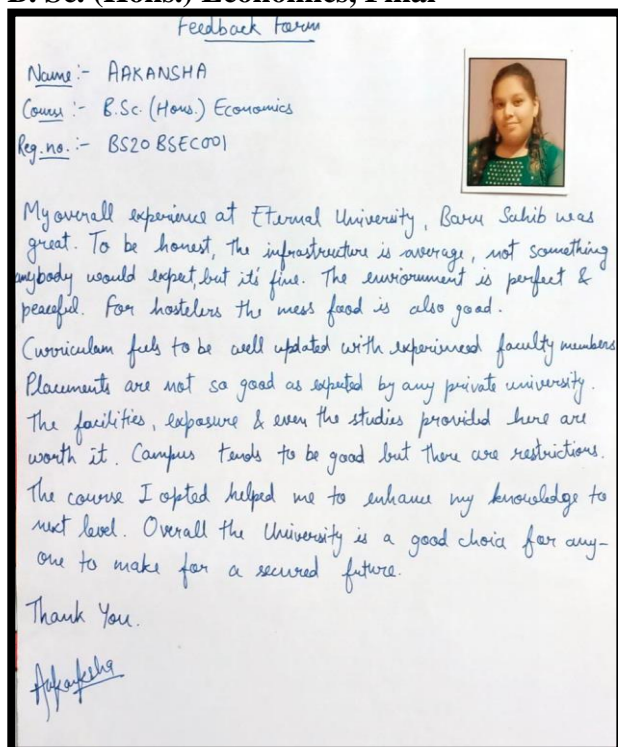 B. Sc. (Hons.) Economics, Final
Feedback Form
Name :- AAKANSHA
Course :- B.Sc. (Hons.) Economics
Reg. no. :- BS20BSEC001
My overall experience at Eternal University, Baru Sahib was
great. To be honest, the infrastructure is average, not something
anybody would expect, but it's fine. The enviornment is perfect &
peaceful. For hostelers the mess food is also good.
Curriculam feels to be well updated with experienced faculty members
Placements are not so good as expected by any private university.
The facilities, exposure & even the studies provided here are
worth it. Campus tends to be good but there are restrictions.
The course I opted helped me to enhance my knowledge to
next level. Overall the University is a good choice for any-
one to make for a secured future.
Thank You.
Aakanksha